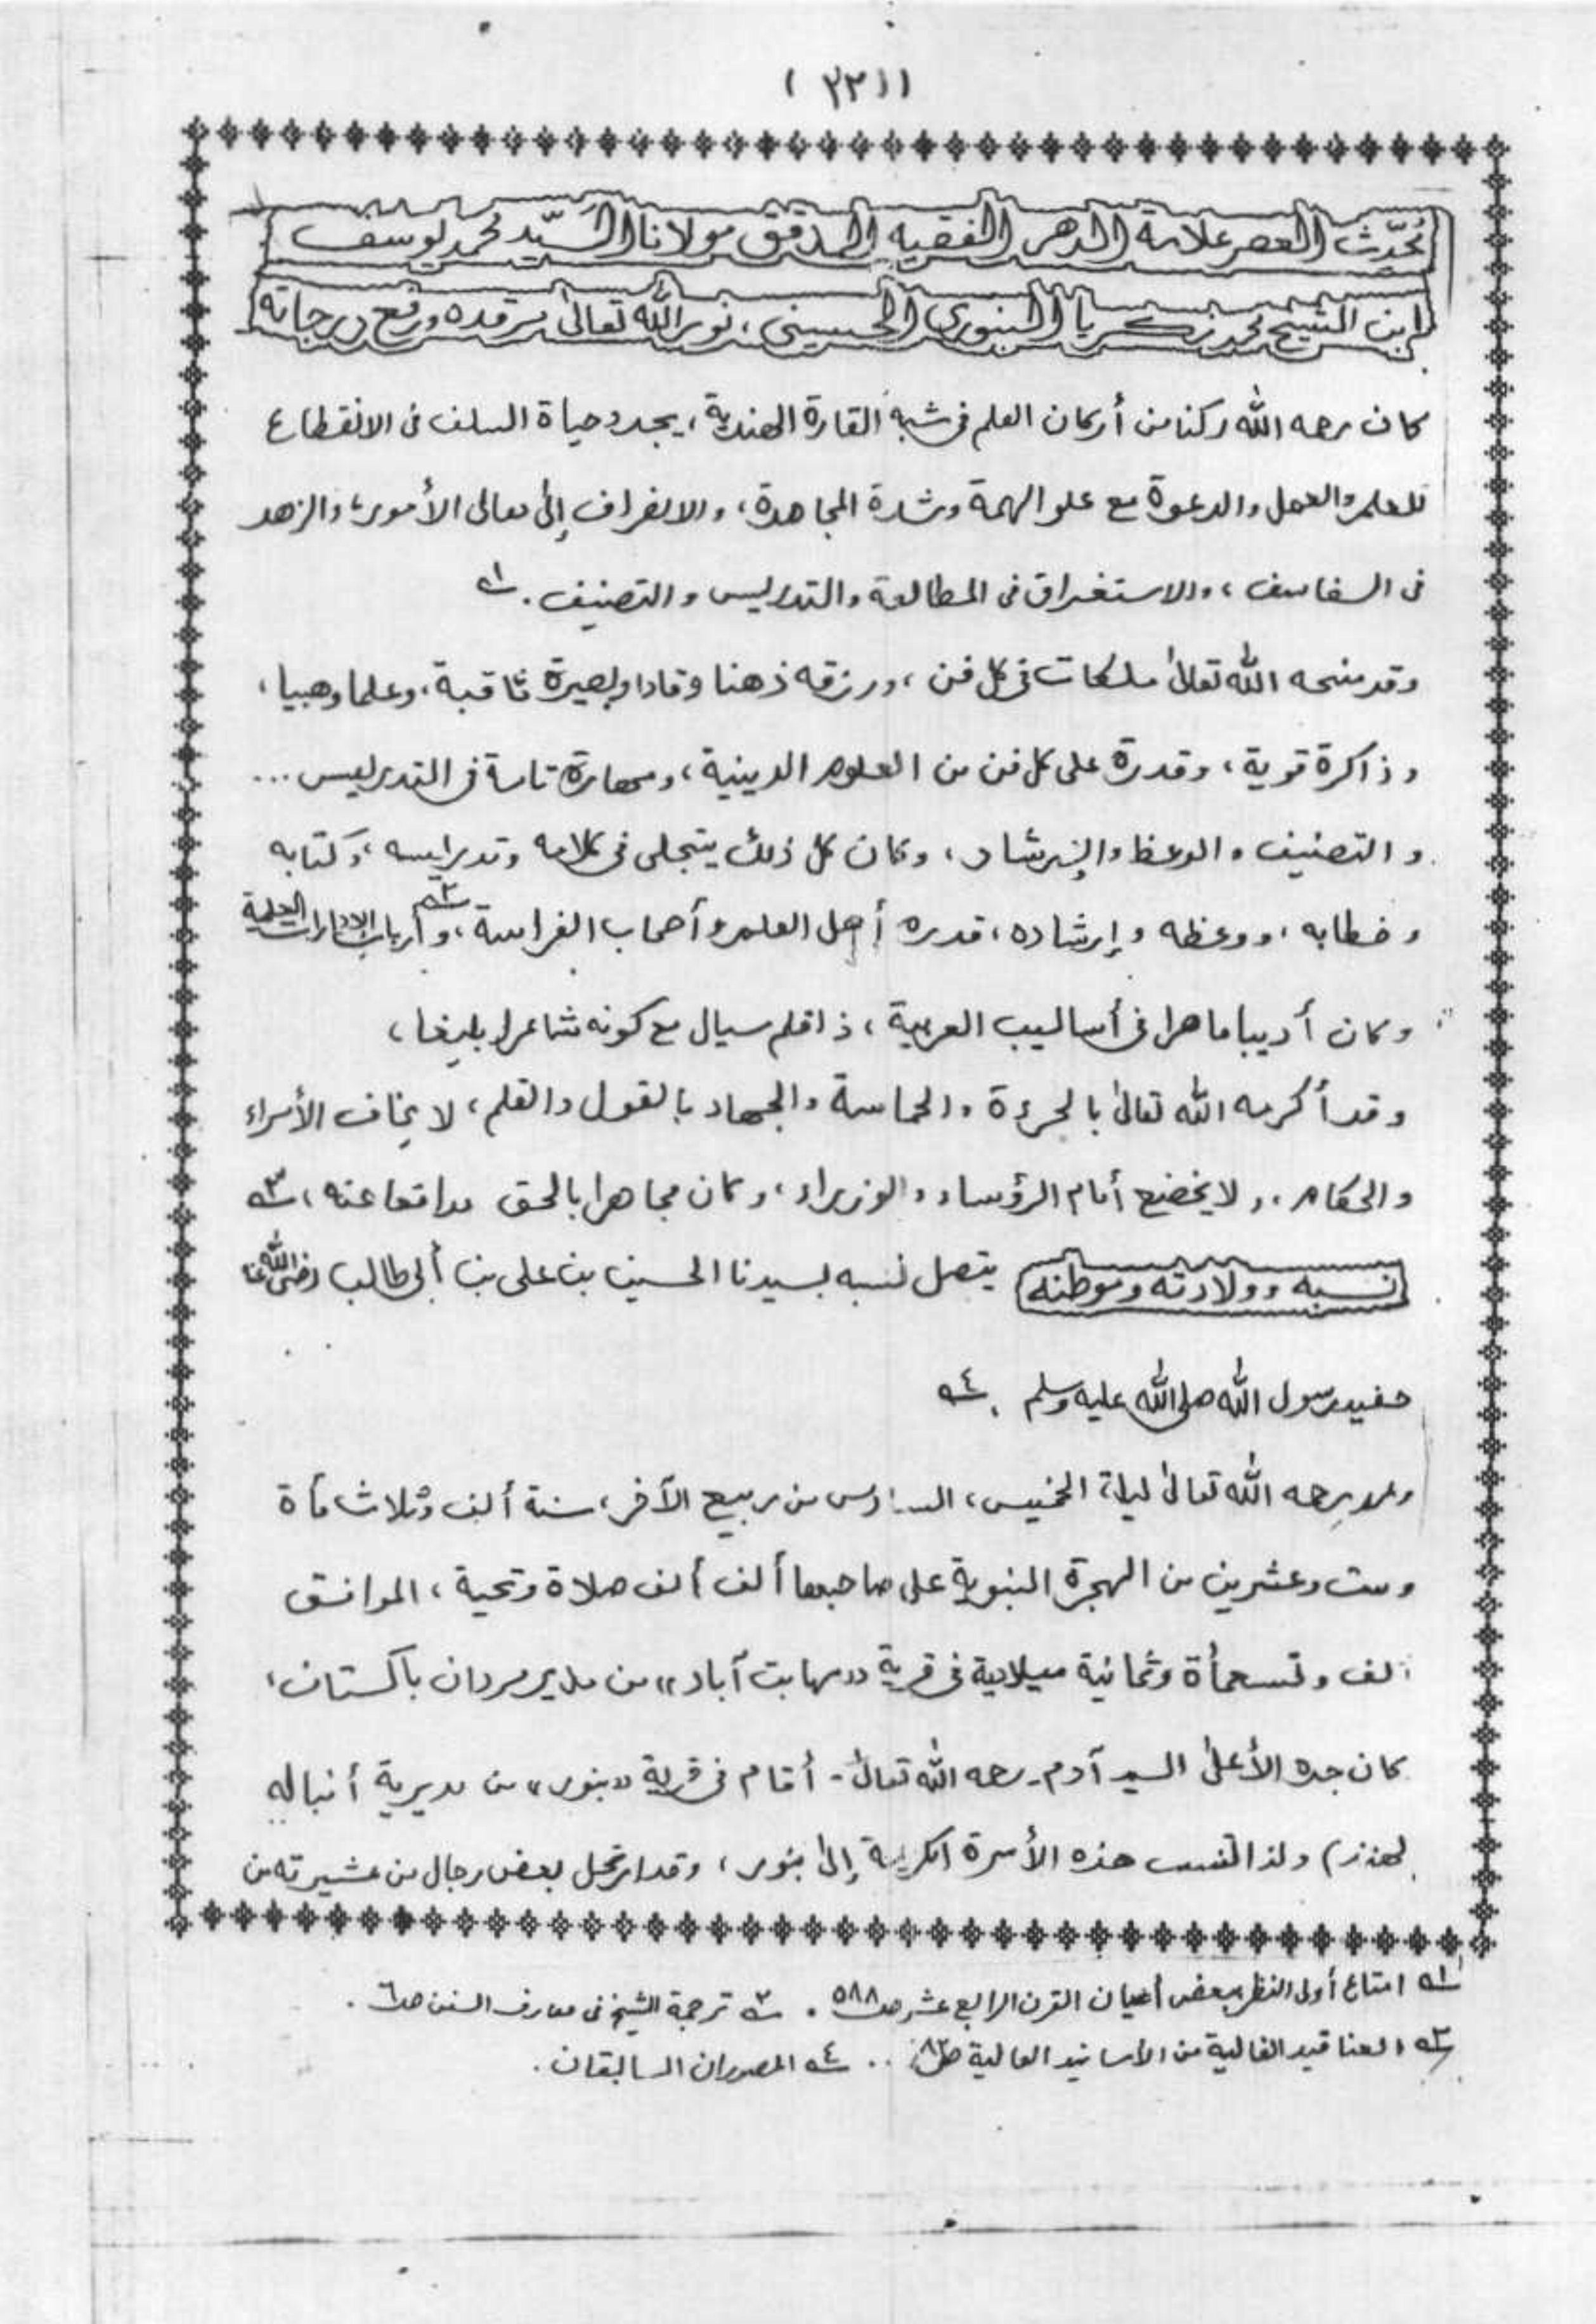 (٣٣١)
محدّث العصر علامة الدهر الفقيه المدقق مولانا السّيد محمد يوسف
ابن الشيخ محمد زكريا البنوري الحسيني، نور الله تعالى مرقده ورفع درجاته
كان رحمه الله ركنا من أركان العلم في شبه القارة الهندية، يجدد حياة السلف في الانقطاع
للعلم والعمل والدعوة مع علو الهمة وشدة المجاهدة، والانصراف إلى معالى الأمور، والزهد
في السفاسف، والاستغراق في المطالعة والتدريس والتصنيف. ١ــه
وقد منحه الله تعالى ملكات في كل فن، ورزقه ذهنا وقادا وبصيرة ثاقبة، وعلما وهبيا،
وذاكرة قوية، وقدرة على كل فن من العلوم الدينية، ومهارة تامة في التدريس ...
والتصنيف والوعظ والإرشاد، وكان كل ذلك يتجلى في كلامه وتدريسه، وكتابه
وخطابه، ووعظه وإرشاده، قدره أهل العلم وأصحاب الفراسة، وأرباب الإدارات العلمية ٢ــه
وكان أديبا ماهرا في أساليب العربية، ذا قلم سيال مع كونه شاعرا بليغا،
وقد أكرمه الله تعالى بالجرءة والحماسة والجهاد بالقول والقلم، لا يخاف الأمراء
والحكام، ولا يخضع أمام الرؤساء والوزراء، وكان مجاهرا بالحق مدافعا عنه، ٣ــه
نسبه وولادته وموطنه يتصل نسبه بسيدنا الحسين بن على بن أبي طالب رضي الله عنه
حفيد رسول الله صلى الله عليه وسلم . ٤ــه
ولد رحمه الله تعالى ليلة الخميس، السادس من ربيع الآخر، سنة ألف وثلاث مأة
وست وعشرين من الهجرة النبوية على صاحبها ألف ألف صلاة وتحية، الموافق
ألف وتسعمأة وثمانية ميلادية في قرية «مهابت آباد» من مدير مردان باكستان،
كان جده الأعلى السيد آدم - رحمه الله تعالى - أقام في قرية «بنور» من مديرية أنباله
(هند) ولذا انتسب هذه الأسرة الكريمة إلى بنور، وقد ارتحل بعض رجال من عشيرته من
١ــه امتاع أولى النظر ببعض أعيان القرن الرابع عشر صـ ٥٨٨ . ٢ــه ترجمة الشيخ في معارف السنن صـ ٦ .
٣ــه العناقيد الغالية من الأسانيد العالية صـ .. ٤ــه المصدران السابقان .